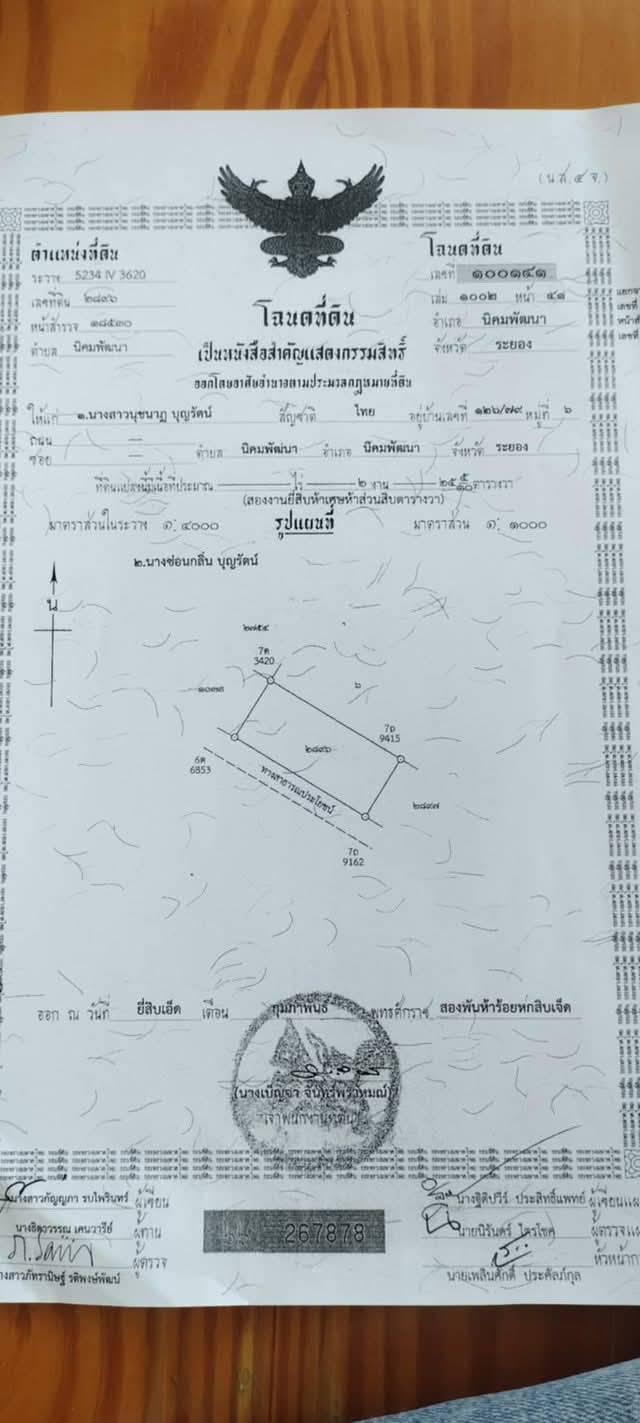 (น.ส.๔ จ.)
ตำแหน่งที่ดิน
ระวาง 5234 IV 3620
เลขที่ดิน ๒๘๙๖
หน้าสำรวจ ๑๘๕๓๐
ตำบล นิคมพัฒนา
โฉนดที่ดิน
เลขที่ ๑๐๐๑๔๑
เล่ม ๑๐๐๒ หน้า ๔๑
อำเภอ นิคมพัฒนา
จังหวัด ระยอง
โฉนดที่ดิน
เป็นหนังสือสำคัญแสดงกรรมสิทธิ์
ออกโดยอาศัยอำนาจตามประมวลกฎหมายที่ดิน
ให้แก่ ๑.นางสาวนุชนาฏ บุญรัตน์ สัญชาติ ไทย อยู่บ้านเลขที่ ๑๒๖/๗๙ หมู่ที่ ๖
ถนน —
ซอย — ตำบล นิคมพัฒนา อำเภอ นิคมพัฒนา จังหวัด ระยอง
ที่ดินแปลงนี้มีเนื้อที่ประมาณ — ไร่ ๒ งาน ๒๕ ๕/๑๐ ตารางวา
(สองงานยี่สิบห้าเศษห้าส่วนสิบตารางวา)
มาตราส่วนในระวาง ๑: ๔๐๐๐ รูปแผนที่ มาตราส่วน ๑: ๑๐๐๐
๒.นางซ่อนกลิ่น บุญรัตน์
น
๒๗๕๔
7ต
3420
๑๐๓๕
๖
7ถ
9415
๒๘๙๖
6ต
6853
ทางสาธารณประโยชน์
๒๘๙๗
7ถ
9162
ออก ณ วันที่ ยี่สิบเอ็ด เดือน กุมภาพันธ์ พุทธศักราช สองพันห้าร้อยหกสิบเจ็ด
(นางเบ็ญจา จันทร์พราหมณ์)
เจ้าพนักงานที่ดิน
นางสาวกัญญภา รบไพรินทร์ ผู้เขียน
นางธิดาวรรณ เคนวารีย์ ผู้ทาน
ผู้ตรวจ
267878
นางฐิติปวีร์ ประสิทธิ์แพทย์ ผู้เขียนแผ
นายนิรันดร์ ไตรโชค ผู้ตรวจแผ
หัวหน้าก
นายเพลินศักดิ์ ประคัลภ์กุล